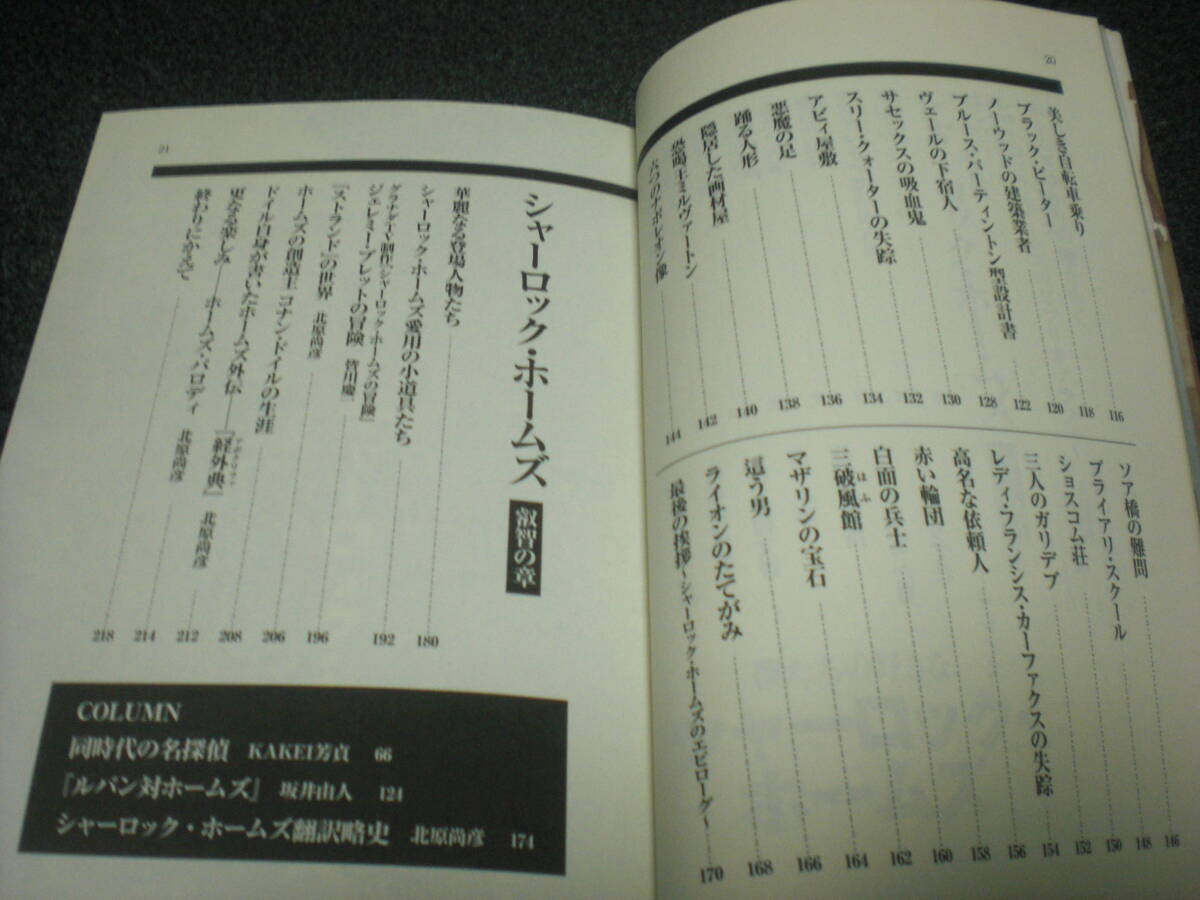 20
美しき自転車乗り 116
ブラック・ピーター 118
ノーウッドの建築業者 120
ブルース・パーティントン型設計書 122
ヴェールの下宿人 128
サセックスの吸血鬼 130
スリークォーターの失踪 132
アビィ屋敷 134
悪魔の足 136
踊る人形 138
隠居した画材屋 140
恐喝王ミルヴァートン 142
六つのナポレオン像 144
ソア橋の難問 146
プライアリ・スクール 148
ショスコム荘 150
三人のガリデブ 152
レディ・フランシス・カーファクスの失踪 154
高名な依頼人 156
赤い輪団 158
白面の兵士 160
三破風館 はふ 162
マザリンの宝石 164
這う男 166
ライオンのたてがみ 168
最後の挨拶～シャーロック・ホームズのエピローグ～ 170
21
シャーロック・ホームズ 叡智の章
華麗なる登場人物たち 180
シャーロック・ホームズ愛用の小道具たち 192
グラナダTV制作『シャーロック・ホームズの冒険』
ジェレミー・ブレットの冒険 皆川慶 196
『ストランド』の世界 北原尚彦 206
ホームズの創造主 コナン・ドイルの生涯 208
ドイル自身が書いたホームズ外伝――『経外典』 アポクリファ 北原尚彦 212
更なる楽しみ――ホームズ・パロディ 北原尚彦 214
終わりにかえて 218
COLUMN
同時代の名探偵 KAKEI芳貞 66
『ルパン対ホームズ』 坂井由人 124
シャーロック・ホームズ翻訳略史 北原尚彦 174